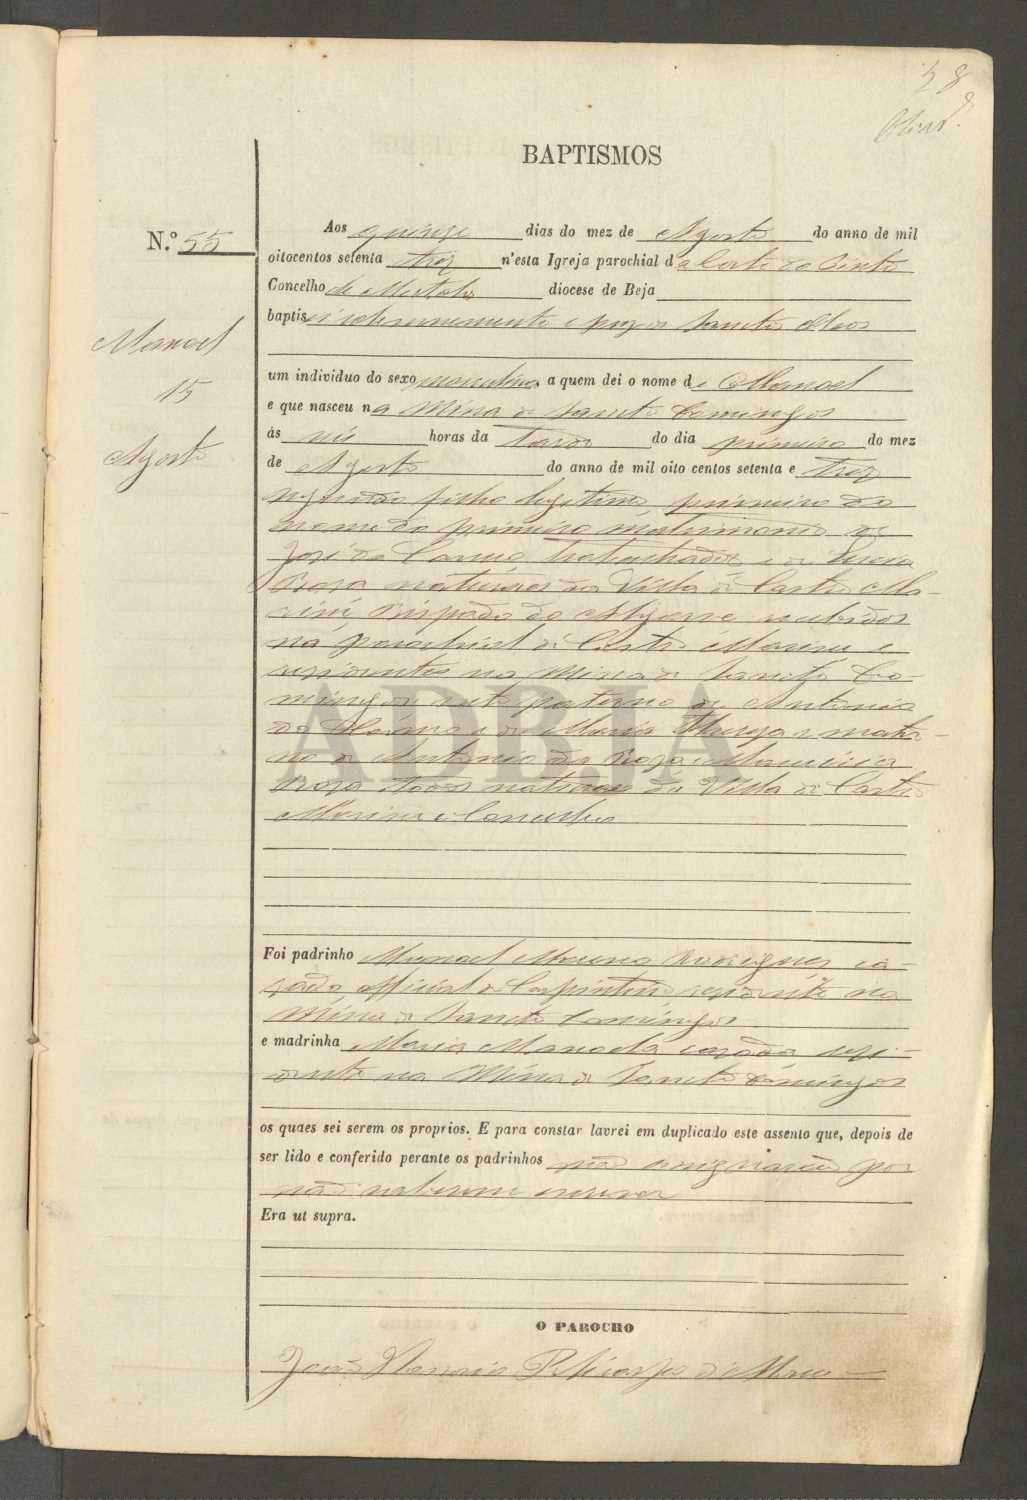 58
BAPTISMOS
N.º 55
Manoel
15
Agosto
Aos quinze dias do mez de Agosto do anno de mil
oitocentos setenta trez n'esta Igreja parochial da Corte do Pinto
Concelho de Mertola diocese de Beja
baptisei solemnemente e puz os Sanctos Oleos
um individuo do sexo masculino a quem dei o nome de Manoel
e que nasceu na Mina de Sancto Domingos
ás horas da tarde do dia primeiro do mez
de Agosto do anno de mil oito centos setenta e trez
filho legitimo primeiro do
nome do primeiro matrimonio de
José do Carmo trabalhador e de
Roza naturaes da Villa de Castro Ma-
rim Bispado do Algarve recebidos
na parochial de Castro Marim e
residentes na Mina de Sancto Do-
mingos neto paterno de Antonio
do e de Maria Thereza e mater-
no de Antonio da Roza e
Roza todos naturaes da Villa de Castro
Marim e Concelho
Foi padrinho Manoel Rodrigues ca-
zado official de Carpinteiro rezidente na
Mina de Sancto Domingos
e madrinha Maria Manoela cazada rezi-
dente na Mina de Sancto Domingos
os quaes sei serem os proprios. E para constar lavrei em duplicado este assento que, depois de
ser lido e conferido perante os padrinhos não assignarão por
não saberem escrever
Era ut supra.
O PAROCHO
ADBJA